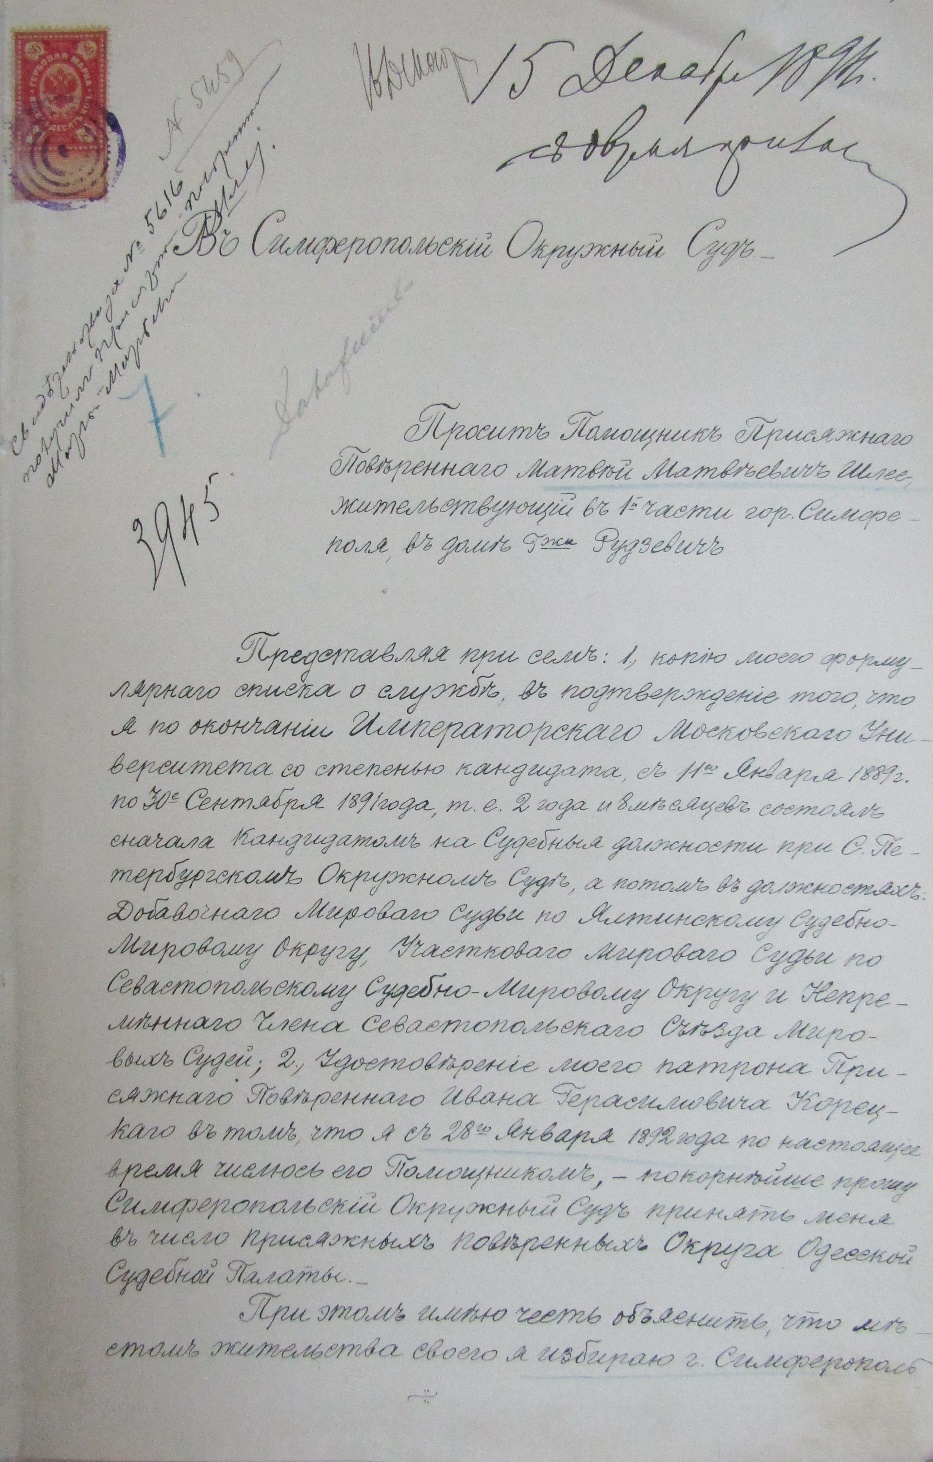 ГЕРБОВАЯ МАРКА
№ 5459
15 Декабр 1894г.
Свидѣтельство за № 5616
получилъ
Въ Симферопольскій Окружный Судъ
7
3945
Проситъ Помощникъ Присяжнаго
Повѣреннаго Матвѣй Матвѣевичъ Шлее,
жительствующій въ 1й части гор. Симфе-
поля, въ домѣ Гжи Рудзевичъ
Представляя при семъ: 1, копію моего форму-
лярнаго списка о службѣ, въ подтвержденіе того, что
я по окончаніи Императорскаго Московскаго Уни-
верситета со степенью кандидата, съ 11го Января 1889г.
по 30е Сентября 1891 года, т. е. 2 года и 8 мѣсяцевъ состоялъ
сначала Кандидатомъ на Судебныя должности при С. Пе-
тербургскомъ Окружномъ Судѣ, а потомъ въ должностяхъ:
Добавочнаго Мироваго Судьи по Ялтинскому Судебно-
Мировому Округу, Участковаго Мироваго Судьи по
Севастопольскому Судебно-Мировому Округу и Непре-
мѣннаго Члена Севастопольскаго Съѣзда Миро-
выхъ Судей; 2, Удостовѣреніе моего патрона При-
сяжнаго Повѣреннаго Ивана Герасимовича Корец-
каго въ томъ, что я съ 28го Января 1892 года по настоящее
время числюсь его Помощникомъ, - покорнѣйше прошу
Симферопольскій Окружный Судъ принять меня
въ число присяжныхъ повѣренныхъ Округа Одесской
Судебной Палаты. -
При этомъ имѣю честь объяснить, что мѣ-
стомъ жительства своего я избираю г. Симферополь